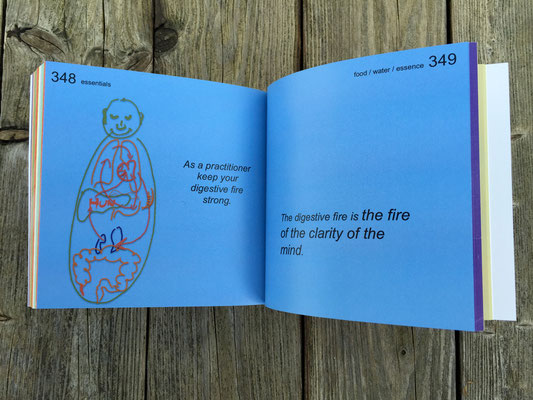 348 essentials
As a practitioner
keep your
digestive fire
strong.
food / water / essence 349
The digestive fire is the fire
of the clarity of the
mind.